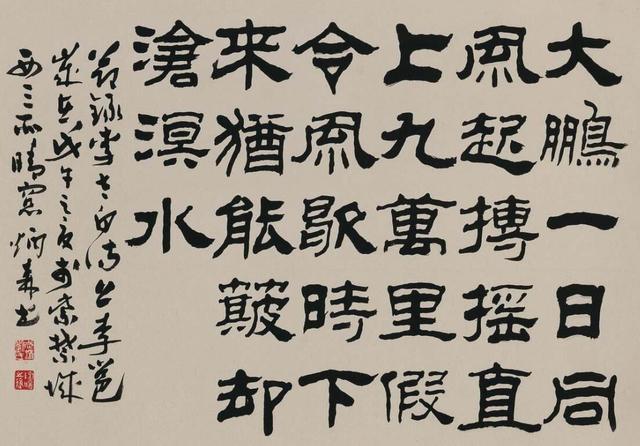 大鵬一日同
風起摶摇直
上九萬里假
令風歇時下
来猶能簸却
滄溟水
節録李太白詩上李邕
歲在戊午之夏於紫禁城
西三所晴窓炳森书